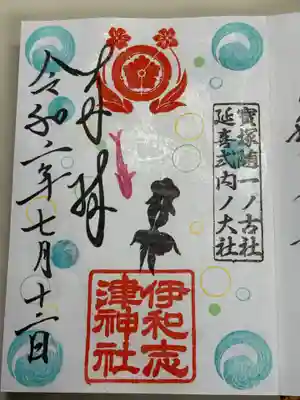 寶塚随一ノ古社
延喜式内ノ大社
奉拝
伊和志
津神社
令和二年七月十二日